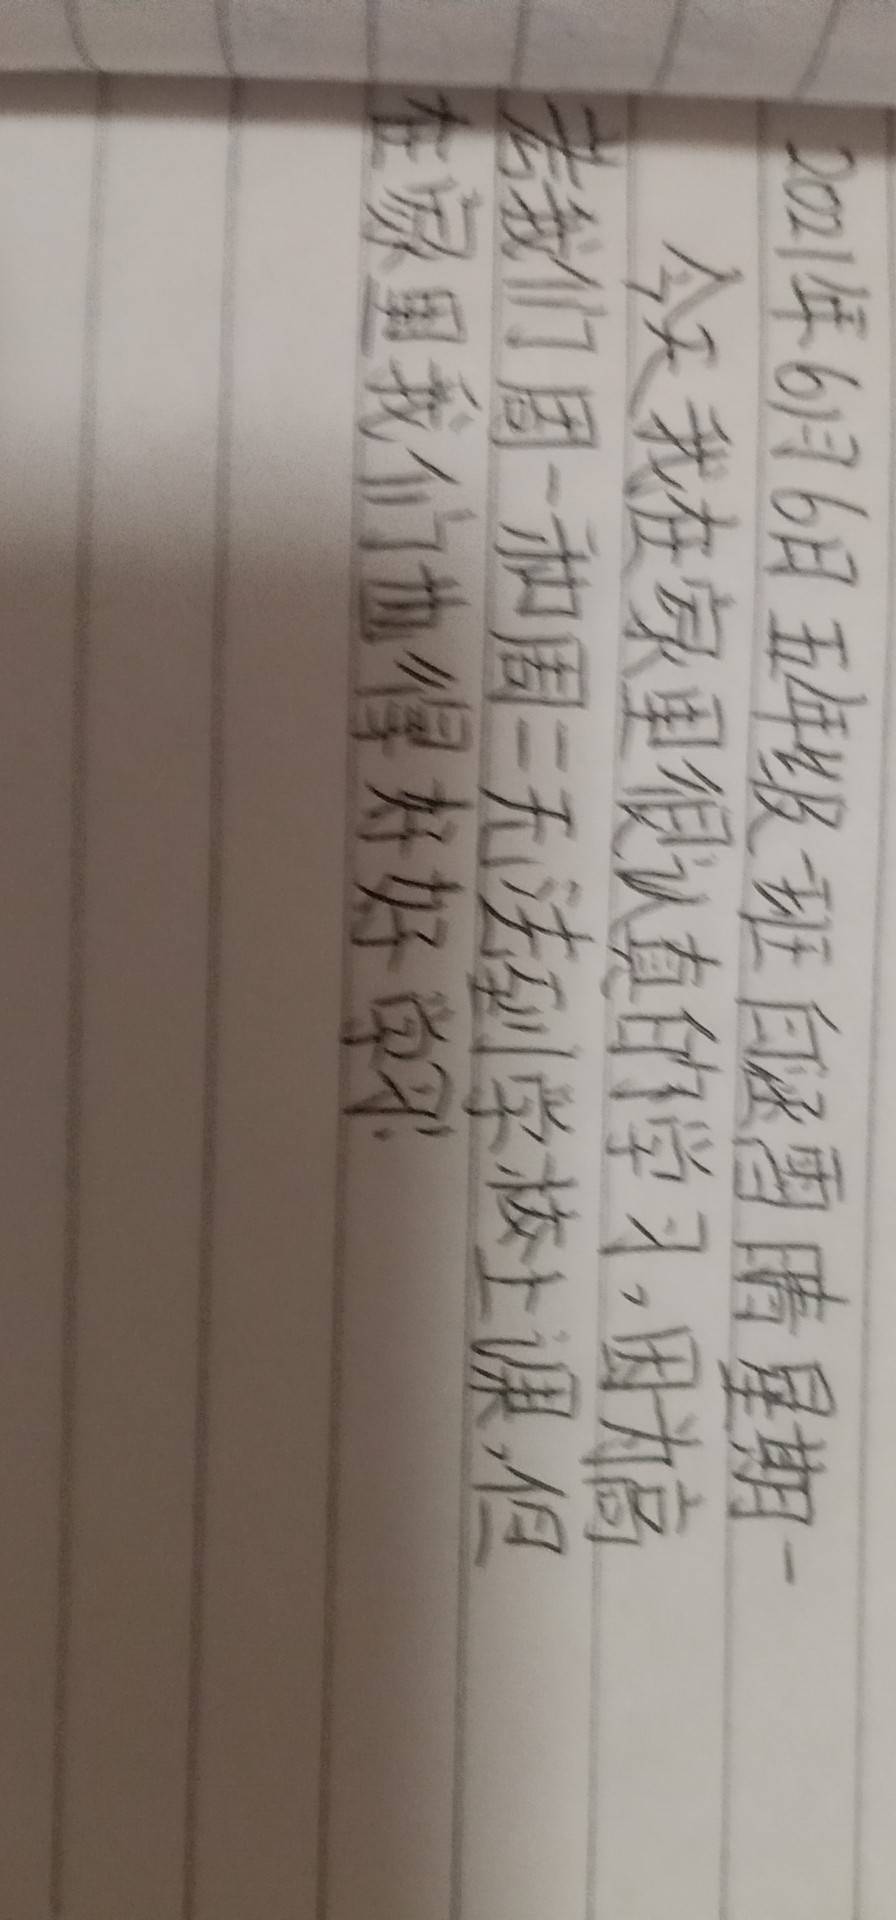 2021年6月6日 五年级一班 白逐雪 晴 星期一
今天我在家里很认真的学习，因为高
考我们周一和周二无法到学校上课，但
在家里我们也得好好学习.